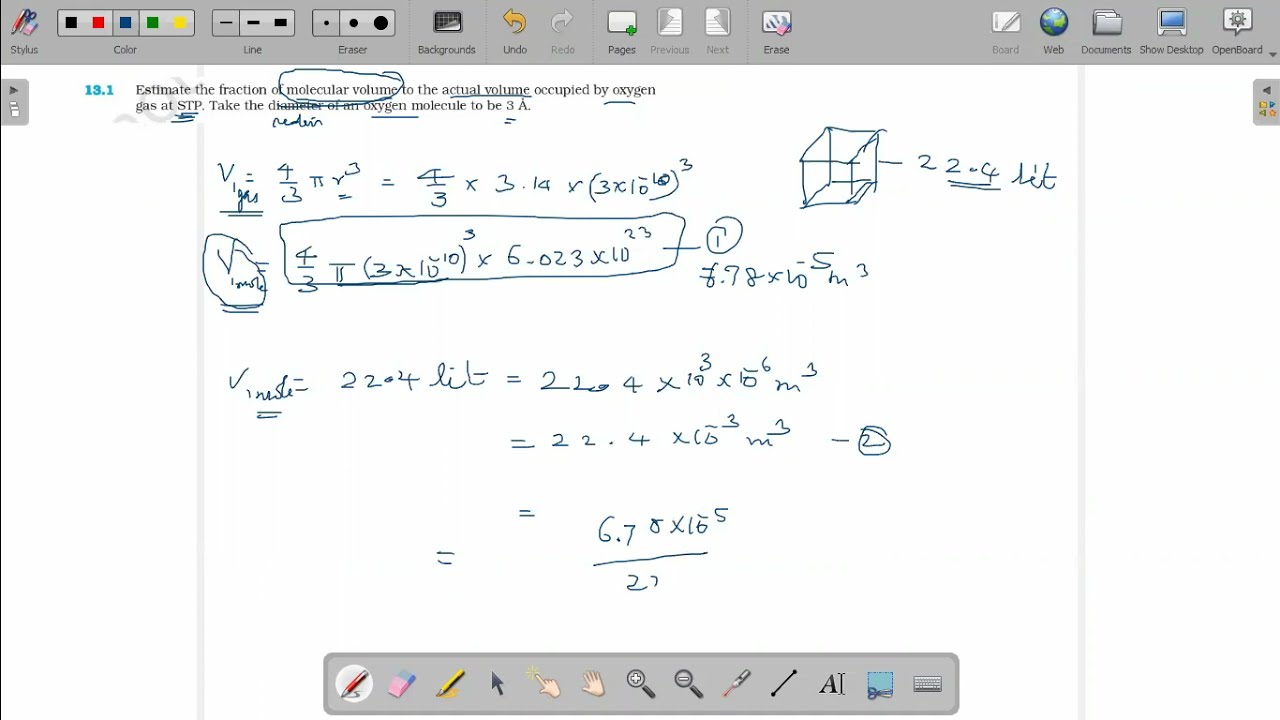 Stylus Color Line Eraser Backgrounds Undo Redo Pages Previous Next Erase Board Web Documents Show Desktop OpenBoard
13.1 Estimate the fraction of molecular volume to the actual volume occupied by oxygen
gas at STP. Take the diameter of an oxygen molecule to be 3 Å.
V₁ gas = 4/3 π r³ = 4/3 × 3.14 × (3×10⁻¹⁰)³
22.4 lit
V₁ mole = 4/3 π (3×10⁻¹⁰)³ × 6.023×10²³ — ①
6.78×10⁻⁵ m³
V₁ mole = 22.4 lit = 22.4 × 10³ × 10⁻⁶ m³
= 22.4 × 10⁻³ m³ — ②
=
= 6.78×10⁻⁵ / 22
AI